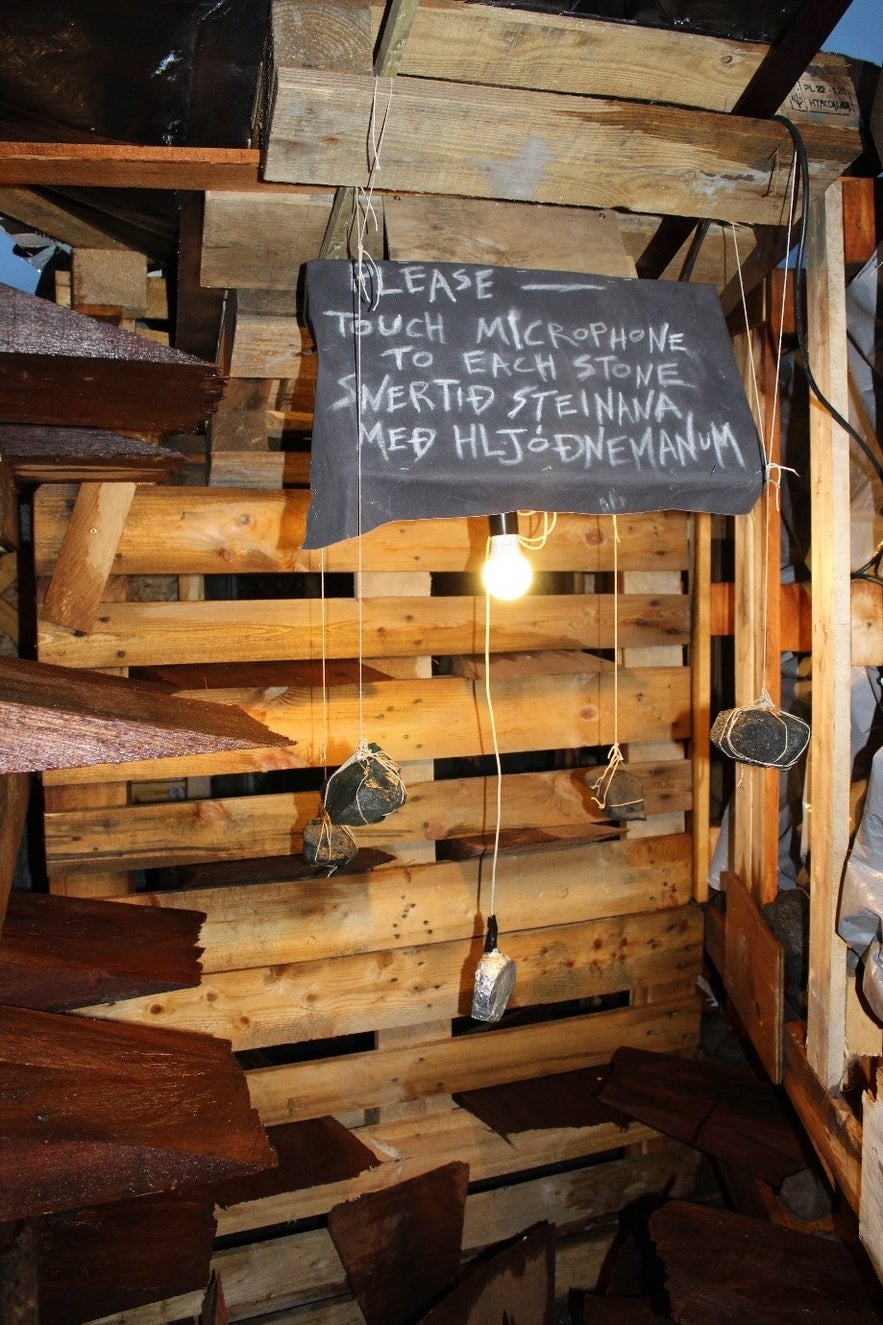 PLEASE —
TOUCH MICROPHONE
TO EACH STONE
SNERTIÐ STEINANA
MEÐ HLJÓÐNEMANUM